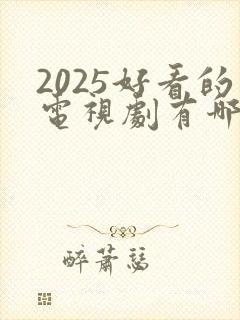 2025好看的
電視劇有哪
醉蕭瑟